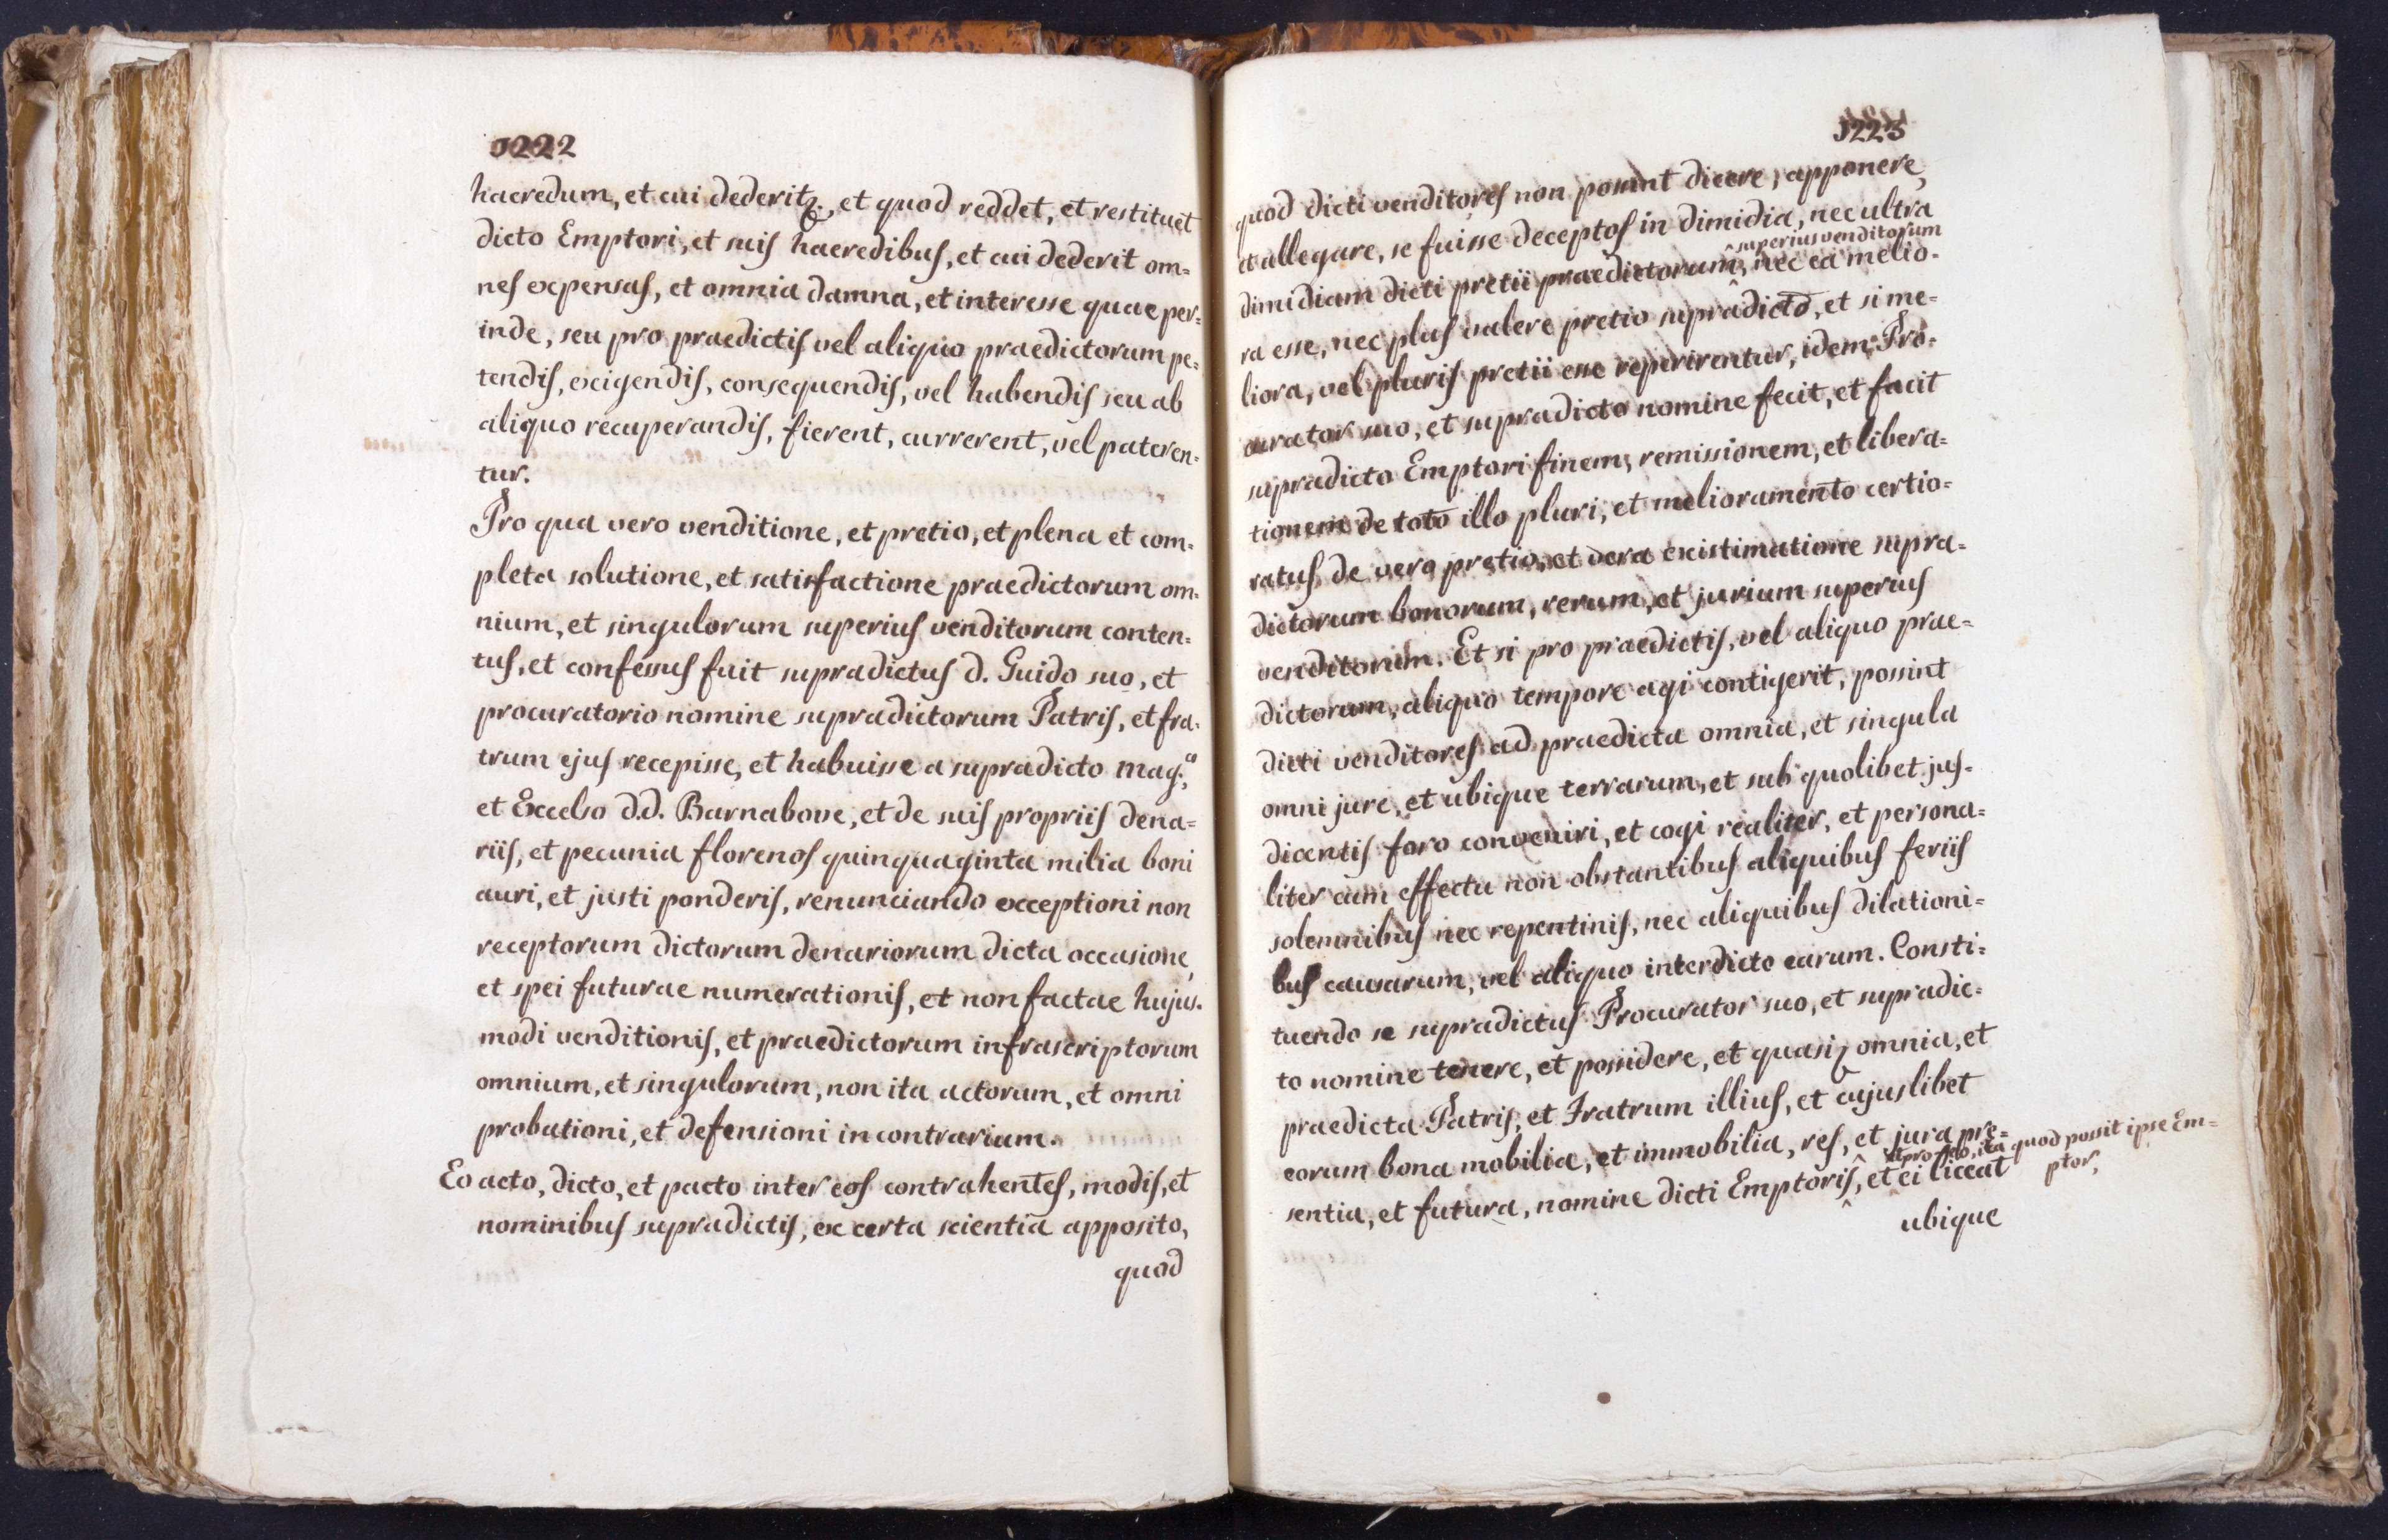 1222
haeredum, et cui dederit &., et quod reddet, et restituet
dicto Emptori, et suis haeredibus, et cui dederit om=
nes expensas, et omnia damna, et interesse quae per=
inde, seu pro praedictis vel aliquo praedictorum pe=
tendis, exigendis, consequendis, vel habendis seu ab
aliquo recuperandis, fierent, currerent, vel pateren=
tur.
Pro qua vero venditione, et pretio, et plena et com=
pleta solutione, et satisfactione praedictorum om=
nium, et singulorum superius venditorum conten=
tus, et confessus fuit supradictus d. Guido suo, et
procuratorio nomine supradictorum Patris, et fra=
trum ejus recepisse, et habuisse a supradicto mag.co
et Excelso d.d. Barnabove, et de suis propriis dena=
riis, et pecunia florenos quinquaginta milia boni
auri, et justi ponderis, renunciando exceptioni non
receptorum dictorum denariorum dicta occasione,
et spei futurae numerationis, et non factae hujus=
modi venditionis, et praedictorum infrascriptorum
omnium, et singulorum, non ita actorum, et omni
probationi, et defensioni in contrarium.
Eo acto, dicto, et pacto inter eos contrahentes, modis, et
nominibus supradictis, ex certa scientia apposito,
quod
1223
quod dicti venditores non possint dicere, apponere,
et allegare, se fuisse deceptos in dimidia, nec ultra
superius venditorum
dimidiam dicti pretii praedictorum^, nec ea melio=
ra esse, nec plus valere pretio supradicto, et si me=
liora, vel pluris pretii esse reperirentur, idem Pro=
curator suo, et supradicto nomine fecit, et facit
supradicto Emptori finem, remissionem, et libera=
tionem de toto illo pluri, et melioramento certio=
ratus de vero pretio, et vera existimatione supra=
dictorum bonorum, rerum, et jurium superius
venditorum. Et si pro praedictis, vel aliquo prae=
dictorum, aliquo tempore agi contigerit, possint
dicti venditores ad praedicta omnia, et singula
omni jure, et ubique terrarum, et sub quolibet jus=
dicentis foro conveniri, et cogi realiter, et persona=
liter cum effectu non obstantibus aliquibus feriis
solemnibus nec repentinis, nec aliquibus dilationi=
bus causarum, vel aliquo interdicto earum. Consti=
tuendo se supradictus Procurator suo, et supradic=
to nomine tenere, et possidere, et quasi, omnia, et
praedicta Patris, et Fratrum illius, et cujuslibet
eorum bona mobilia, et immobilia, res, et jura pre=
ita quod possit ipse Em=
ptor,
sentia, et futura, nomine dicti Emptoris^, et ei liceat
ubique